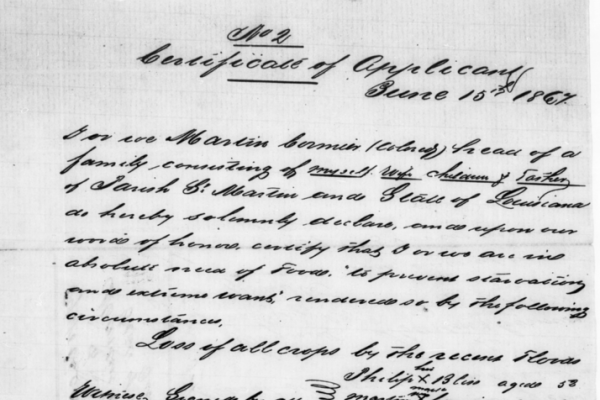 No 2
Certificate of Applicant
June 15th 1867.
I or we Martin Cormier (Colored) head of a
family, consisting of myself, wife, children &
of Parish St. Martin and State of Louisiana
do hereby solemnly declare, and upon our
words of honor, certify that I or we are in
absolute need of Food, to prevent starvation
and extreme want, rendered so by the following
circumstances.
Loss of all crops by the recent Floods
his
Philip X Bliss aged 58
mark
Witness Signed by